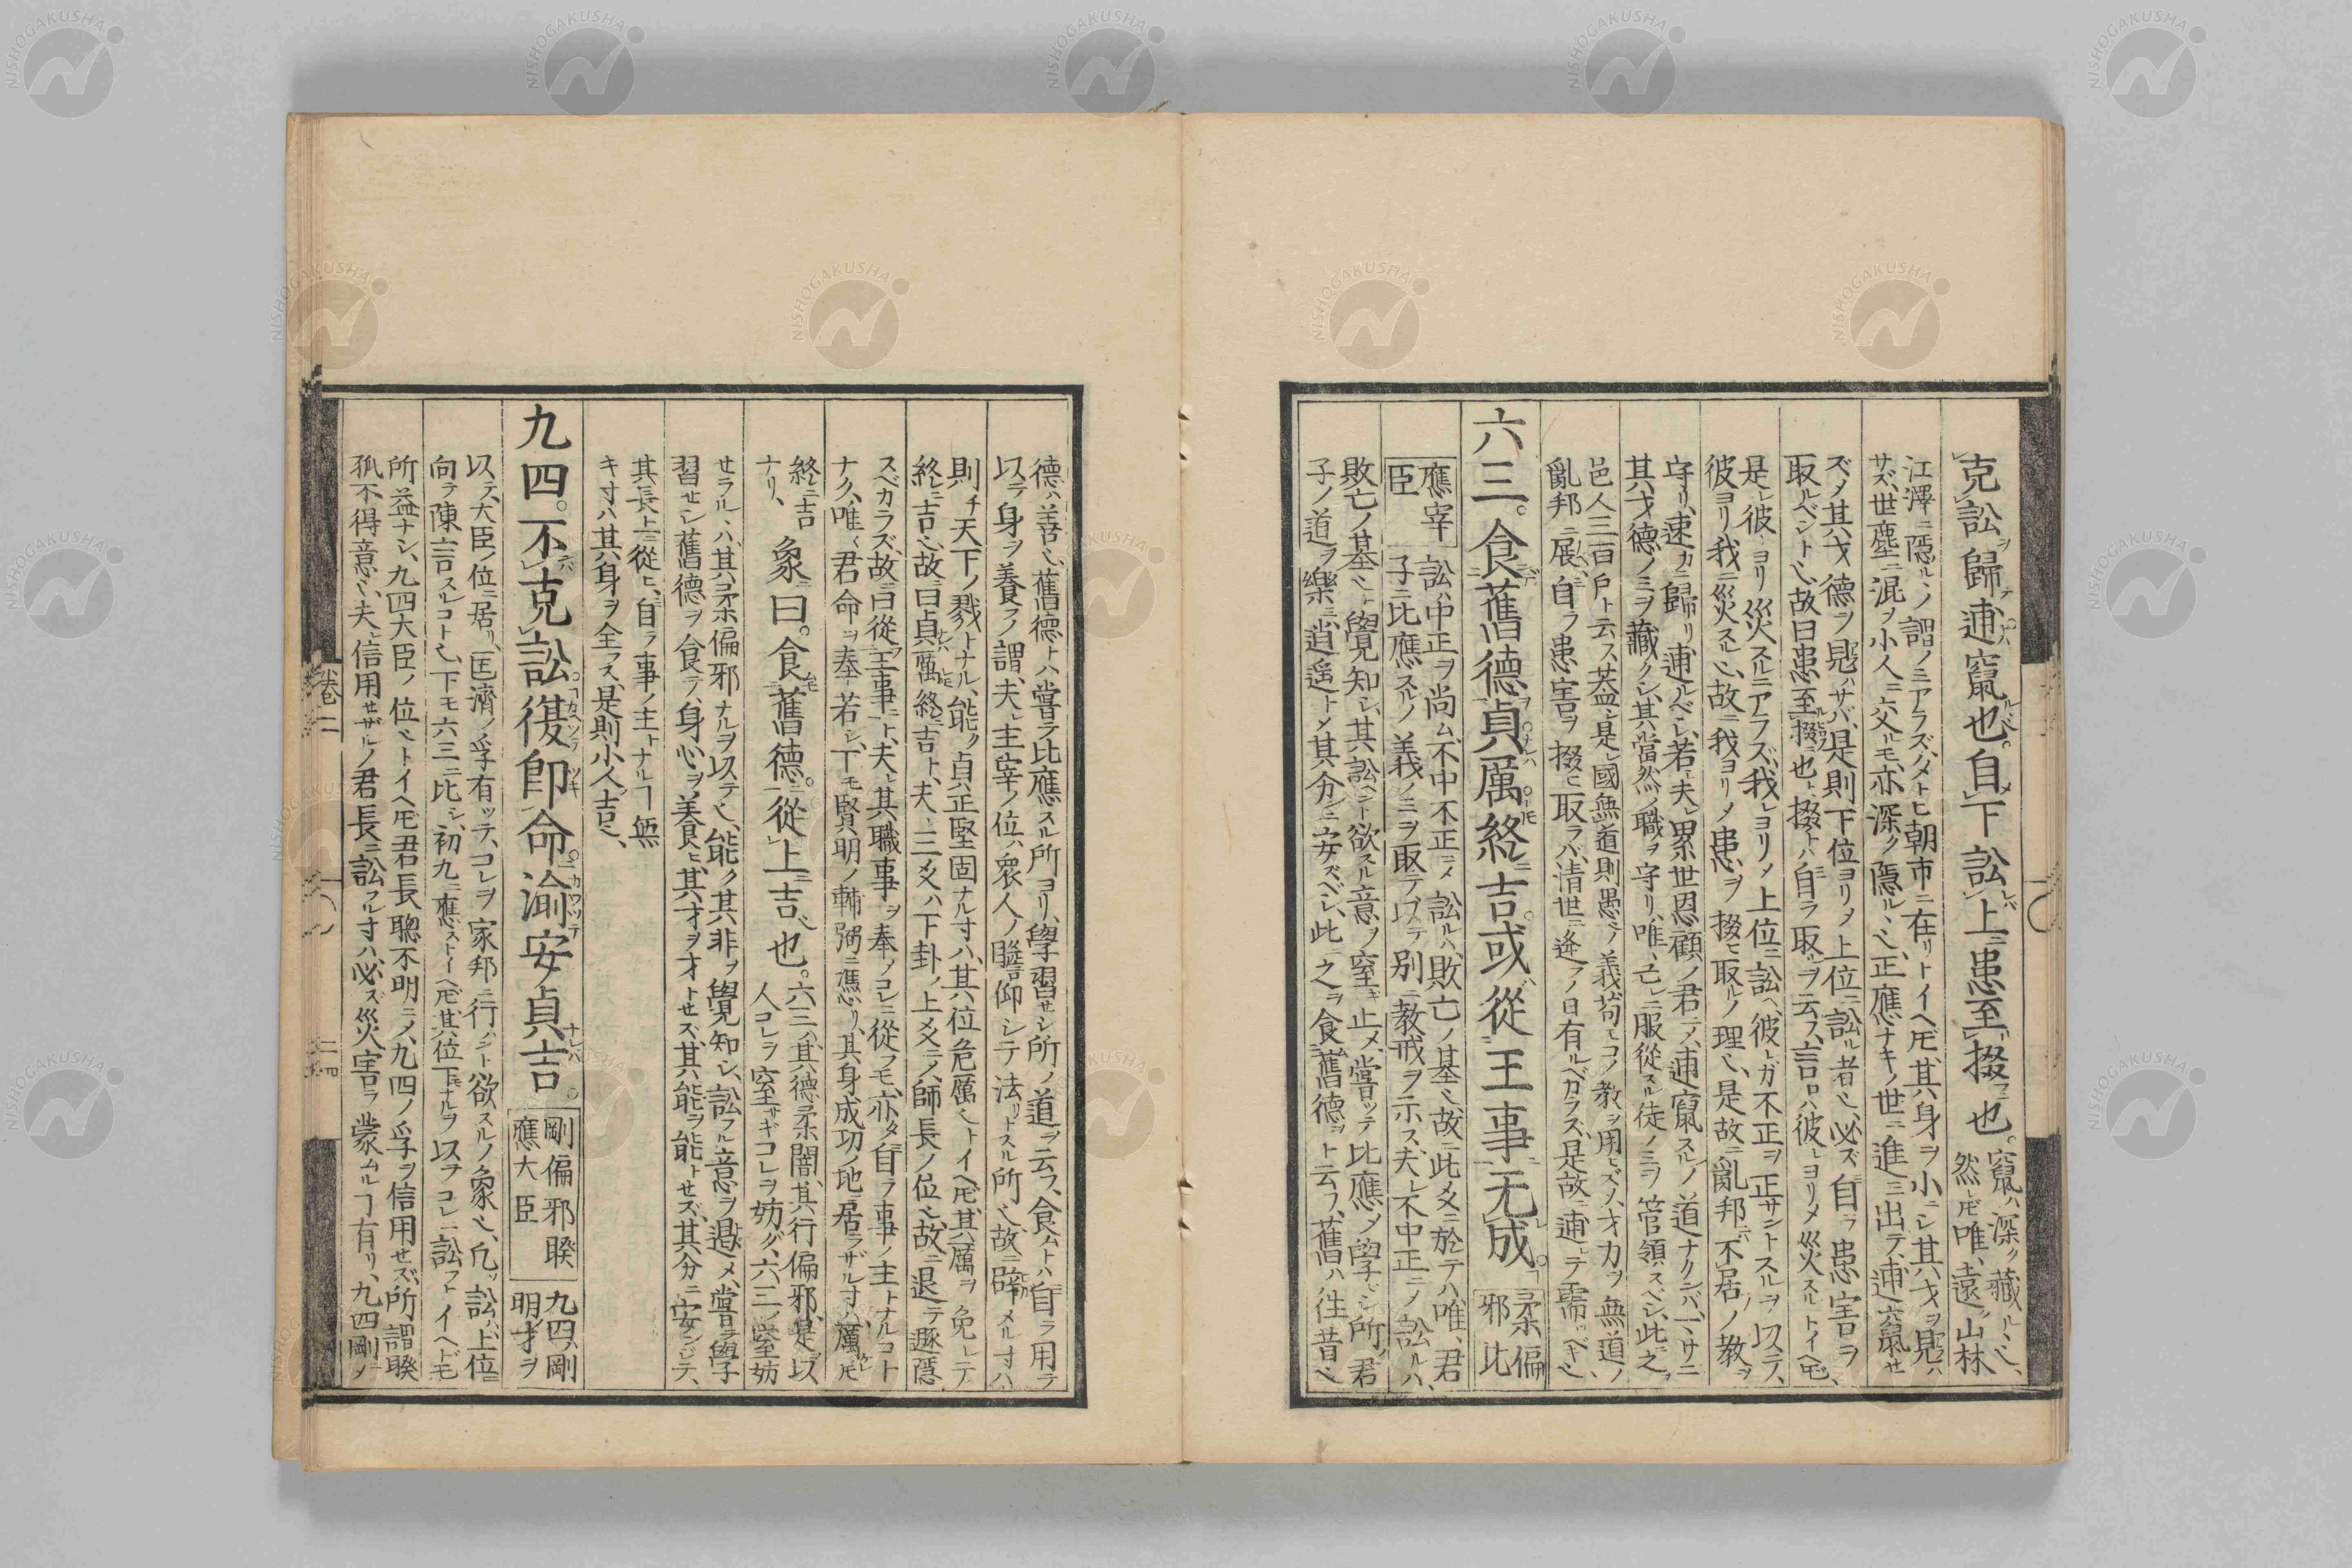 克訟歸逋竄也。自下訟上患至掇也。
竄ハ深ク藏ルヽ也、
然レ𪜈唯、遠ク山林
江澤ニ隱ルヽノ謂ノミアラズ、タトヒ朝市ニ在リトイヘ𪜈、其身ヲ小ニシ其才ヲ見ハ
サズ、世塵ニ混ヲ小人ニ交ルモ、亦深ク隱ルヽ也、正應ナキノ世ニ進ミ出テ、逋竄セ
ズノ其才德ヲ見ハサバ、是則下位ヨリメ上位ニ訟ル者也、必ズ自ラ患害ヲ
取ルベシト也、故曰患至掇也ト、掇トハ自ラ取ルヲ云フ、言ロハ彼レヨリメ災スルトイヘ𪜈、
是レ彼ヨリ災スルニアラズ、我レヨリメ上位ニ訟ヘ、彼レガ不正ヲ正サントスルヲ以テ、
彼ヨリ我ニ災スル也、故ニ我ヨリメ患ヲ掇ヒ取ルノ理也、是故ニ亂邦ニハ不居ノ教ヲ
守リ、速カニ歸リ逋ルベシ、若シ夫レ累世恩顧ノ君ニメ、逋竄スルノ道ナクンバ、一ニサニ
其才德ノミヲ藏クシ、其當然ノ職ヲ守リ、唯、己レニ服從スル徒ノミヲ管領スベシ、此之ヲ
邑人三百戶ト云フ、蓋シ是レ國無道則愚ノ義、苟モコノ教ヲ用ヒズメ、才力ヲ無道ノ
亂邦ニ展ベ、自ラ患害ヲ掇ヒ取ラバ、清世ニ逢フノ日有ルベカラズ、是故ニ逋テ需ツベキ也、
六三。食舊德貞厲終吉或從王事无成。
柔偏
邪比
應宰
臣
訟ハ中正ヲ尚ム、不中不正ニメ訟ルハ、敗亡ノ基也、故ニ此爻ニ於テハ唯、君
子ニ比應スルノ義ノミヲ取テ以テ別ニ教戒ヲ示ス、夫レ不中正ニメ訟ルハ、
敗亡ノ基也ト覺知シ、其訟ヘント欲スル意ヲ窒ギ止メ、嘗ツテ比應メ學ビシ所ノ君
子ノ道ヲ樂ミ、逍遙トメ其分ニ安ズベシ、此之ヲ食舊德ト云フ、舊ハ往昔也
德ハ善也、舊德トハ嘗テ比應スル所ヨリ、學習セシ所ノ道ヲ云フ、食ムトハ自ラ用テ
以テ身ヲ養フノ謂、夫レ主宰ノ位ハ衆人ノ瞻仰シテ法リトスル所也、故ニ辟メルヿハ
則チ天下ノ戮トナル、能ク貞正堅固ナルヿハ、其位危厲也トイヘ𪜈、其厲ヲ免レテ
終ニ吉也、故曰貞厲終吉ト、夫レ三爻ハ下卦ノ上爻ニメ、師長ノ位也、故ニ退テ遯隱
スベカラズ、故曰從王事ト、夫レ其職事ヲ奉ノコレニ從フモ、亦タ自ラ事ノ主トナルコト
ナク、唯ヽ君命ヲ奉、若シ、下モ賢明ノ輔弼ニ應リ、其身成功ノ地ニ居ラザルヿハ、厲𪜈
終ニ吉
ナリ、
象曰。食舊德。從上吉也。
六三ハ其德柔闇、其行偏邪、是以
人コレヲ窒サギコレヲ妨グ、六三ノ窒妨
セラルヽハ、其柔偏邪ナルヲ以テ也、能ク其非ヲ覺知シ、訟フル意ヲ遏メ、嘗テ學
習セシ舊德ヲ食テ、身心ヲ養食ヒ、其才ヲ才トセズ、其能ヲ能トセズ、其分ニ安ンジテ、
其長上ニ從ヒ、自ラ事ノ主トナルヿ無
キヿハ其身ヲ全フス、是則小人吉也、
九四。不克訟復卽命。渝安貞吉。
剛偏邪睽
應大臣
九四ハ剛
明ノ才ヲ
以テ、大臣ノ位ニ居リ、匡濟ノ孚有ッテ、コレヲ家邦ニ行ハント欲スルノ象也、凡ソ訟ハ上位ニ
向テ陳言スルコト也、下モ六三ニ比シ、初九ニ應ストイヘ𪜈、其位下モナルヲ以テコレニ訟フトイヘドモ
所益ナシ、九四大臣ノ位也トイヘ𪜈、君長聰不明ニメ、九四ノ孚ヲ信用セズ、所謂睽
孤不得意也、夫レ信用セザルノ君長ニ訟フルヿハ、必ズ災害ヲ蒙ムルヿ有リ、九四剛ニメ
卷二
二十四